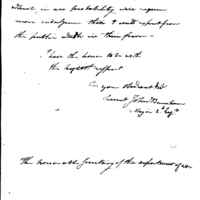 which in all probability will require
more indulgence than I could expect from
the public
I have the honor to be with
the highest respect
Sir your obedient
Servt John Burnham
Major 2d Regt
The honorable Secretary of the department of war